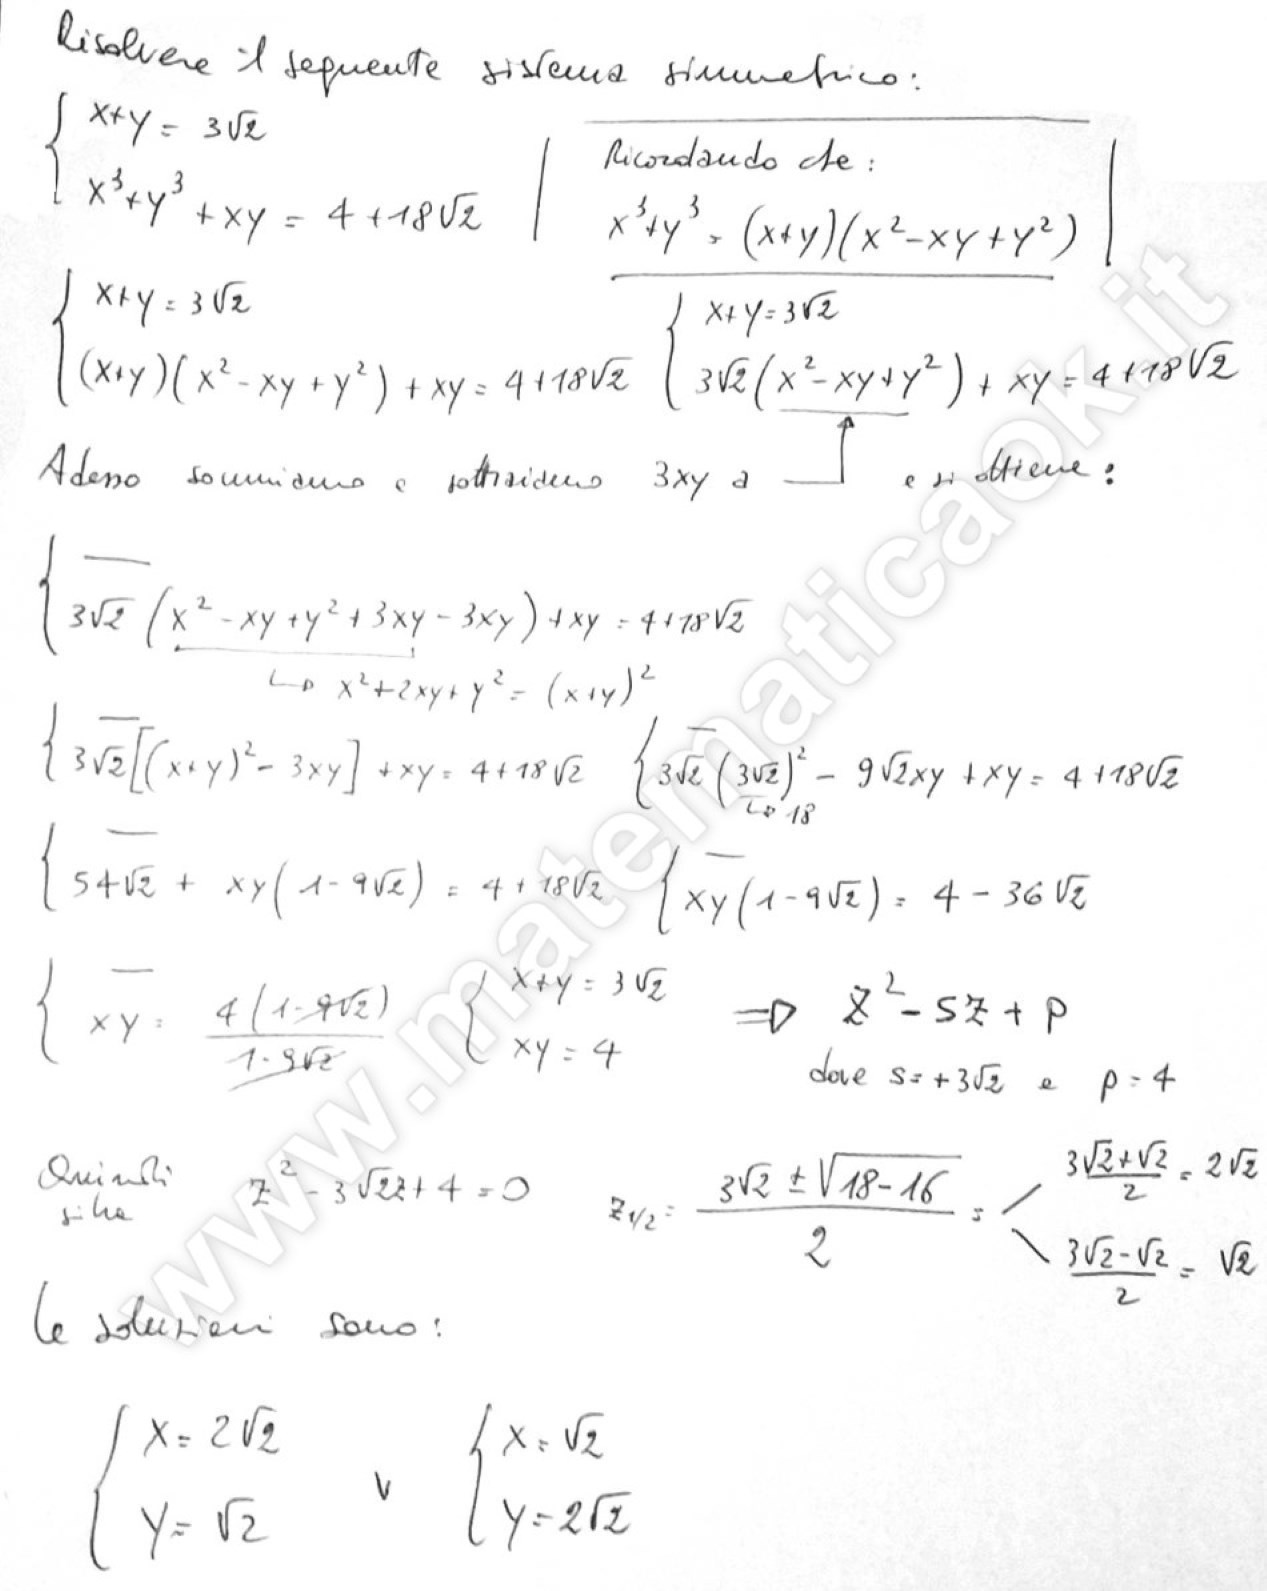 Risolvere il seguente sistema simmetrico:
{ x+y = 3√2
{ x³+y³+xy = 4+18√2
Ricordando che:
x³+y³ = (x+y)(x²-xy+y²)
{ x+y = 3√2
{ (x+y)(x²-xy+y²)+xy = 4+18√2
{ x+y = 3√2
{ 3√2(x²-xy+y²)+xy = 4+18√2
Adesso sommiamo e sottraiamo 3xy a e si ottiene:
{ 3√2(x²-xy+y²+3xy-3xy)+xy = 4+18√2
↳ x²+2xy+y² = (x+y)²
{ 3√2[(x+y)²-3xy]+xy = 4+18√2
{ 3√2(3√2)²-9√2xy+xy = 4+18√2
↳ 18
{ 54√2+xy(1-9√2) = 4+18√2
{ xy(1-9√2) = 4-36√2
{ xy = 4(1-9√2)/1-9√2
{ x+y = 3√2
{ xy = 4
⇒ z²-sz+p
dove s=+3√2 e p=4
Quindi si ha z²-3√2z+4=0
z1/2 = 3√2±√18-16/2 =
3√2+√2/2 = 2√2
3√2-√2/2 = √2
Le soluzioni sono:
{ x=2√2
{ y=√2
v
{ x=√2
{ y=2√2
www.matematicaok.it